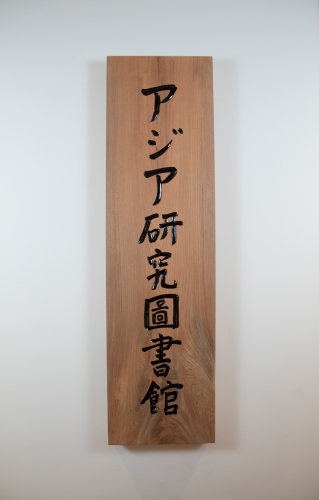 アジア研究圖書館